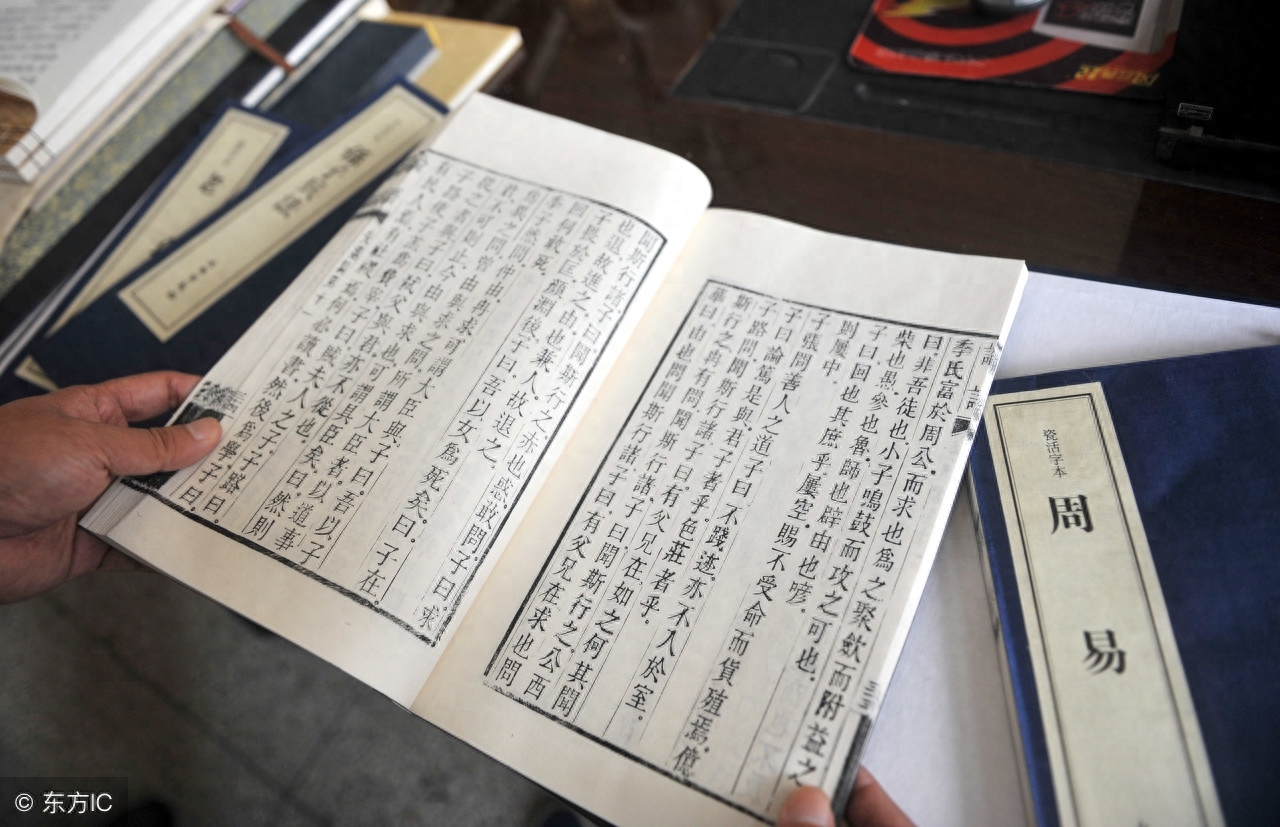 季氏富於周公。而求也爲之聚斂而附益之
曰非吾徒也小子鳴鼓而攻之可也。
柴也愚。參也魯。師也辟。由也喭。
子曰回也其庶乎。屢空。賜不受命而貨殖焉。億
則屢中。
子張問善人之道子曰不踐迹。亦不入於室。
子曰論篤是與。君子者乎。色莊者乎。
子路問聞斯行諸。子曰。有父兄在。如之何其聞
斯行之。冉有問聞斯行諸。子曰。聞斯行之。公西
華曰。由也問聞斯行諸子曰。有父兄在求也問
聞斯行諸。子曰。聞斯行之。赤也惑。敢問。子曰。求
也退。故進之。由也兼人。故退之。
子畏於匡。顏淵後。子曰。吾以女爲死矣。曰。子在。
回何敢死。
季子然問仲由。冉求可謂大臣與。子曰。吾以子
爲異之問。曾由與求之問。所謂大臣者。以道事
君。不可則止。今由與求也。可謂具臣矣。曰。然則
從之者與。子曰。弑父與君。亦不從也。
子路使子羔爲費宰。子曰。賊夫人之子。子路曰。
有民人焉。有社稷焉。何必讀書。然後爲學。子曰。
瓷活字本
周易
© 东方IC